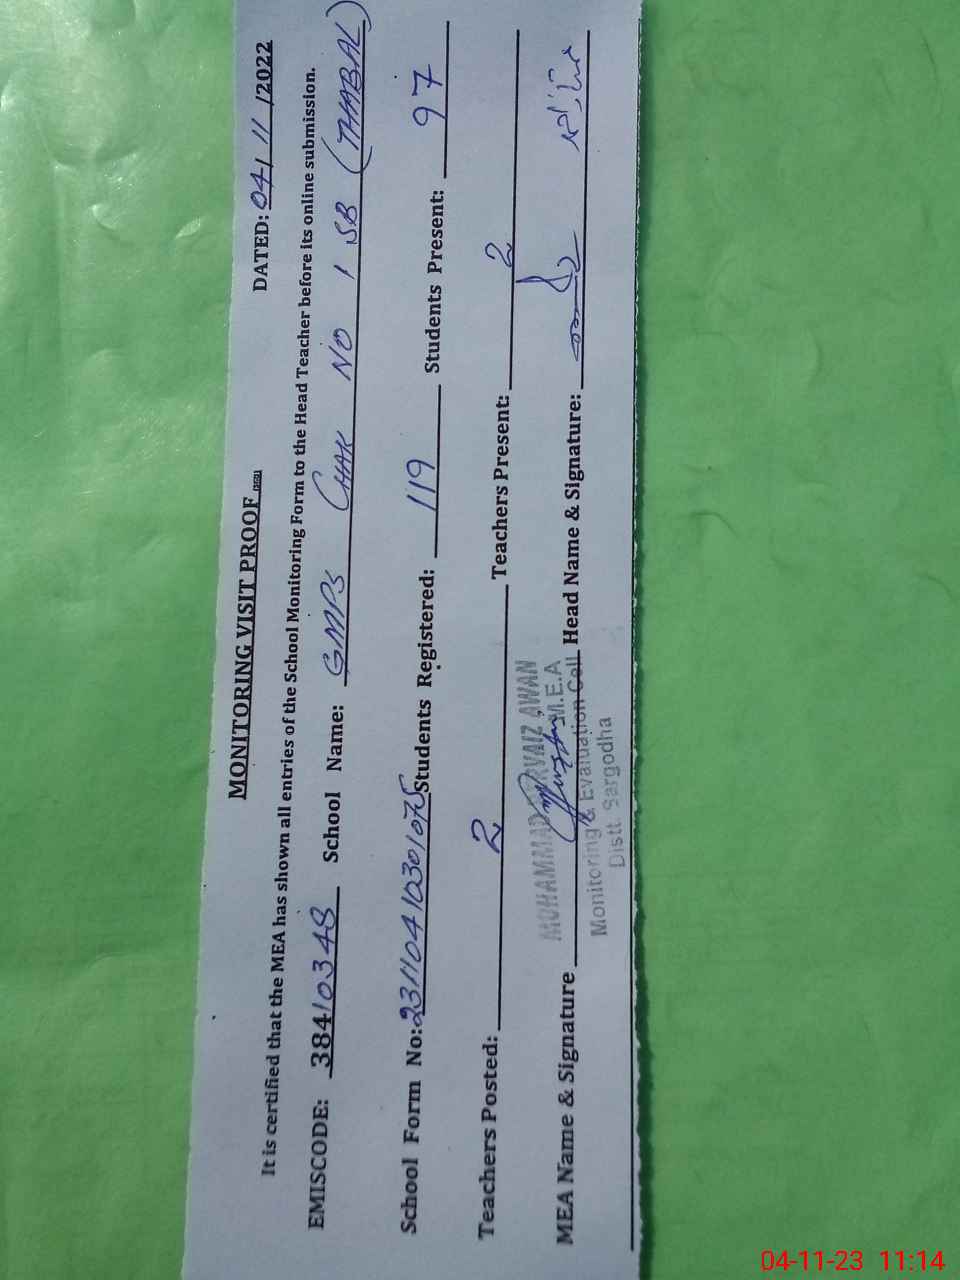 MONITORING VISIT PROOF
DATED: 04/11/2022
It is certified that the MEA has shown all entries of the School Monitoring Form to the Head Teacher before its online submission.
EMISCODE: 38410348 School Name: GMPS CHAK NO 1 SB (THABAL)
School Form No: 23110410301075 Students Registered: 119 Students Present: 97
Teachers Posted: 2 Teachers Present: 2
MEA Name & Signature Head Name & Signature:
MUHAMMAD PERVAIZ AWAN
M.E.A
Monitoring & Evaluation Cell
Distt. Sargodha
04-11-23 11:14